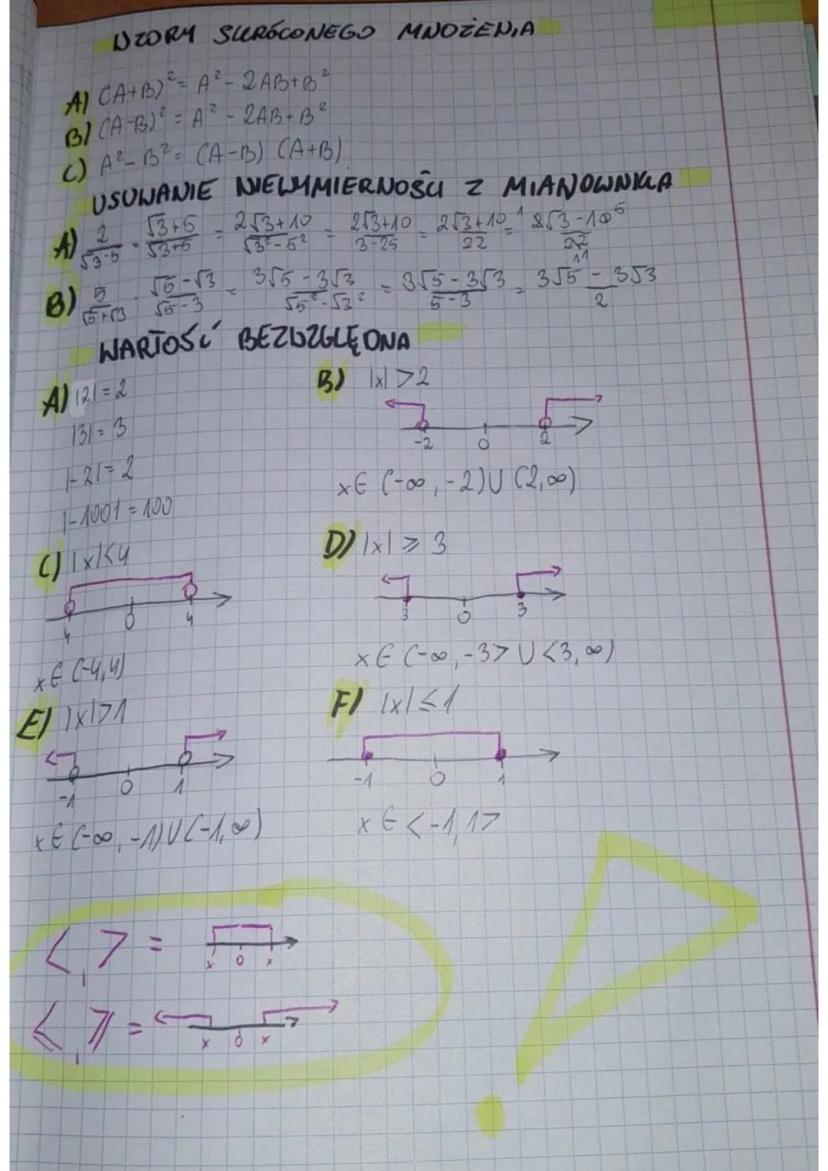 WZORY SKRÓCONEGO MNOŻENIA
A) (A+B)² = A² - 2AB+B²
B) (A-B)² = A² - 2AB+B²
C) A²-B² = (A-B) (A+B)
USUWANIE NIEWYMIERNOŚCI Z MIANOWNIKA
A) 2/√3-5 · √3+5/√3+5 = 2√3+10/√3²-5² = 2√3+10/3-25 = 2√3+10/22 = ¹2√3-10⁵/22 11
B) 5/√5+√3 · √5-√3/√5-3 = 3√5-3√3/√5²-√3² = 3√5-3√3/5-3 = 3√5-3√3/2
WARTOŚĆ BEZWZGLĘDNA
A) |2| = 2
|3| = 3
|-2| = 2
|-100| = 100
B) |x| > 2
-2 0 2
x∈ (-∞, -2)∪(2,∞)
C) |x|<4
4 0 4
x∈ (-4,4)
D) |x| ⩾ 3
3 0 3
x∈ (-∞, -3> ∪ <3, ∞)
E) |x|>1
-1 0 1
x∈ (-∞, -1)∪(-1,∞)
F) |x| ≤ 1
-1 0 1
x ∈ < -1, 1>
<, > =
x 0 x
⩽, ⩾ =
x 0 x